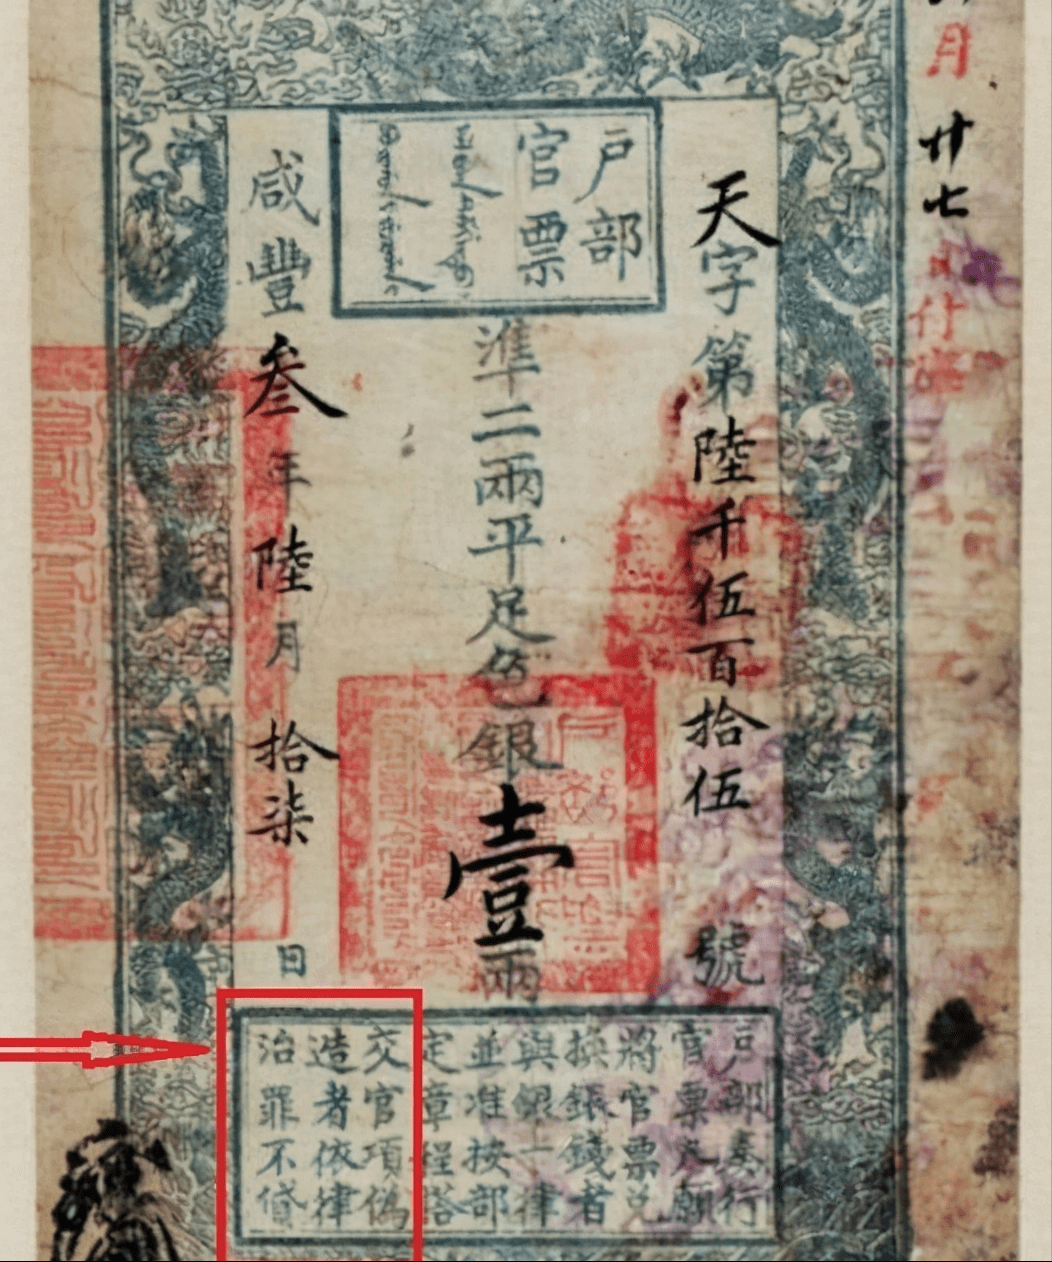 月廿七日付
天字第陸千伍百拾伍號
户部
官票
準二兩平足色銀壹兩
咸豐叁年陸月拾柒日
户部奏行
官票凡願
將官票兌
換銀錢者
與銀一律
並准按部
定章程搭
交官項偽
造者依律
治罪不貸